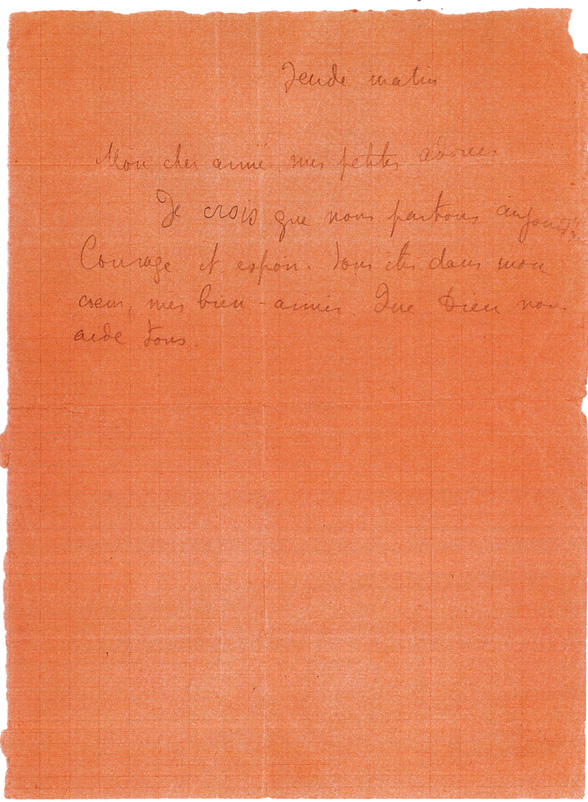 Jeude matin
Mon cher aimé, mes petites adorées
Je crois que nous partons aujourd'h
Courage et espoir. Vous êtes dans mon
cœur, mes bien-aimés. Que Dieu nous
aide tous.